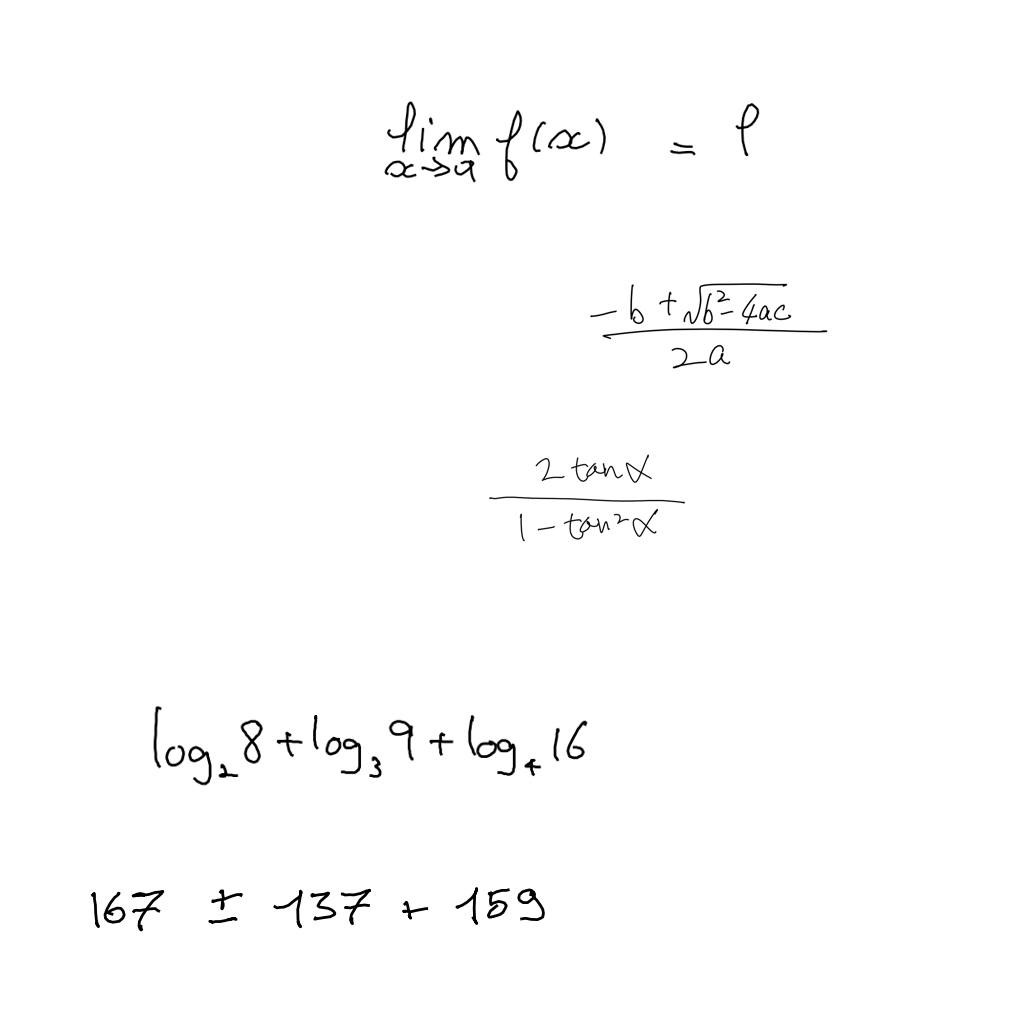 \lim_{x \to a} f(x) = l
\frac{-b + \sqrt{b^2 - 4ac}}{2a}
\frac{2 \tan \alpha}{1 - \tan^2 \alpha}
\log_2 8 + \log_3 9 + \log_4 16
167 ± 137 + 159